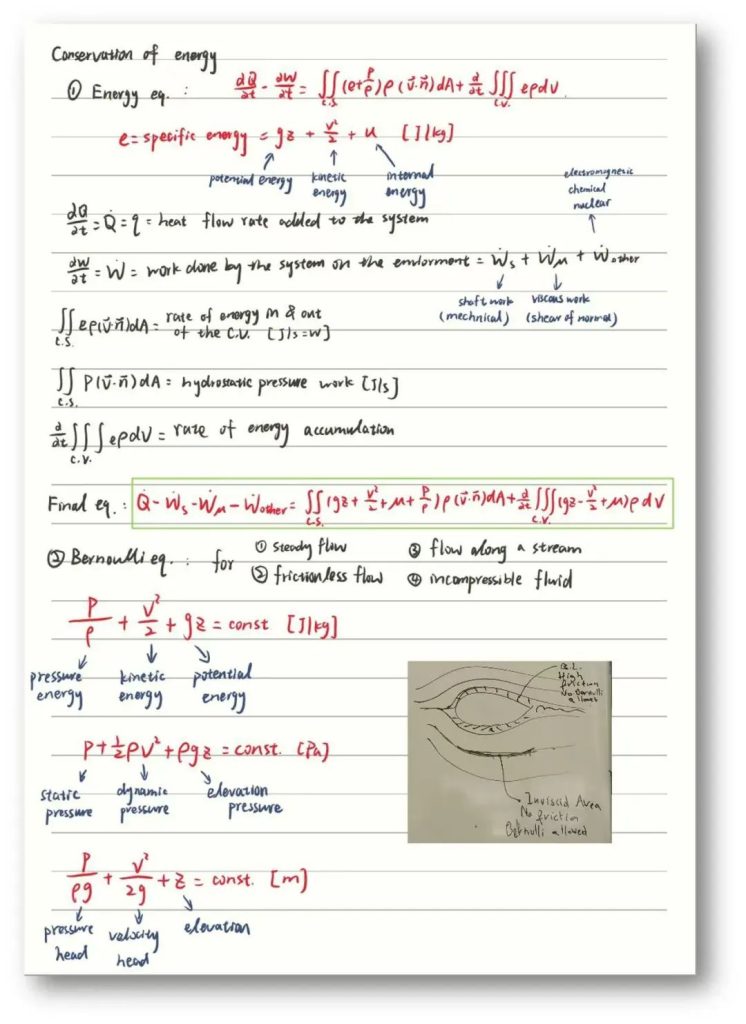 Conservation of energy
① Energy eq. : dQ/dt - dW/dt = ∬c.s. (e+P/ρ)ρ(v⃗·n⃗)dA + d/dt ∭c.v. eρdV
e = specific energy = gz + v²/2 + u [J/kg]
potential energy
kinetic energy
internal energy
electromagnetic
chemical
nuclear
dQ/dt = Q̇ = q = heat flow rate added to the system
dW/dt = Ẇ = work done by the system on the enviorment = Ẇs + Ẇμ + Ẇother
shaft work (mechnical)
viscous work (shear of normal)
∬c.s. eρ(v⃗·n⃗)dA = rate of energy in & out of the C.V. [J/s=W]
∬c.s. P(v⃗·n⃗)dA = hydrostatic pressure work [J/s]
d/dt ∭c.v. eρdV = rate of energy accumulation
Final eq. : Q̇ - Ẇs - Ẇμ - Ẇother = ∬c.s. (gz + v²/2 + μ + P/ρ)ρ(v⃗·n⃗)dA + d/dt ∭c.v. (gz - v²/2 + μ)ρdV
② Bernoulli eq. : for ① steady flow ③ flow along a stream
② frictionless flow ④ incompressible fluid
P/ρ + v²/2 + gz = const [J/kg]
pressure energy
kinetic energy
potential energy
B.L.
High
friction
No Bernulli
allowed
P + ½ρv² + ρgz = const. [Pa]
static pressure
dynamic pressure
elevation pressure
Inviscid Area
No friction
Bernulli allowed
P/ρg + v²/2g + z = const. [m]
pressure head
velocity head
elevation